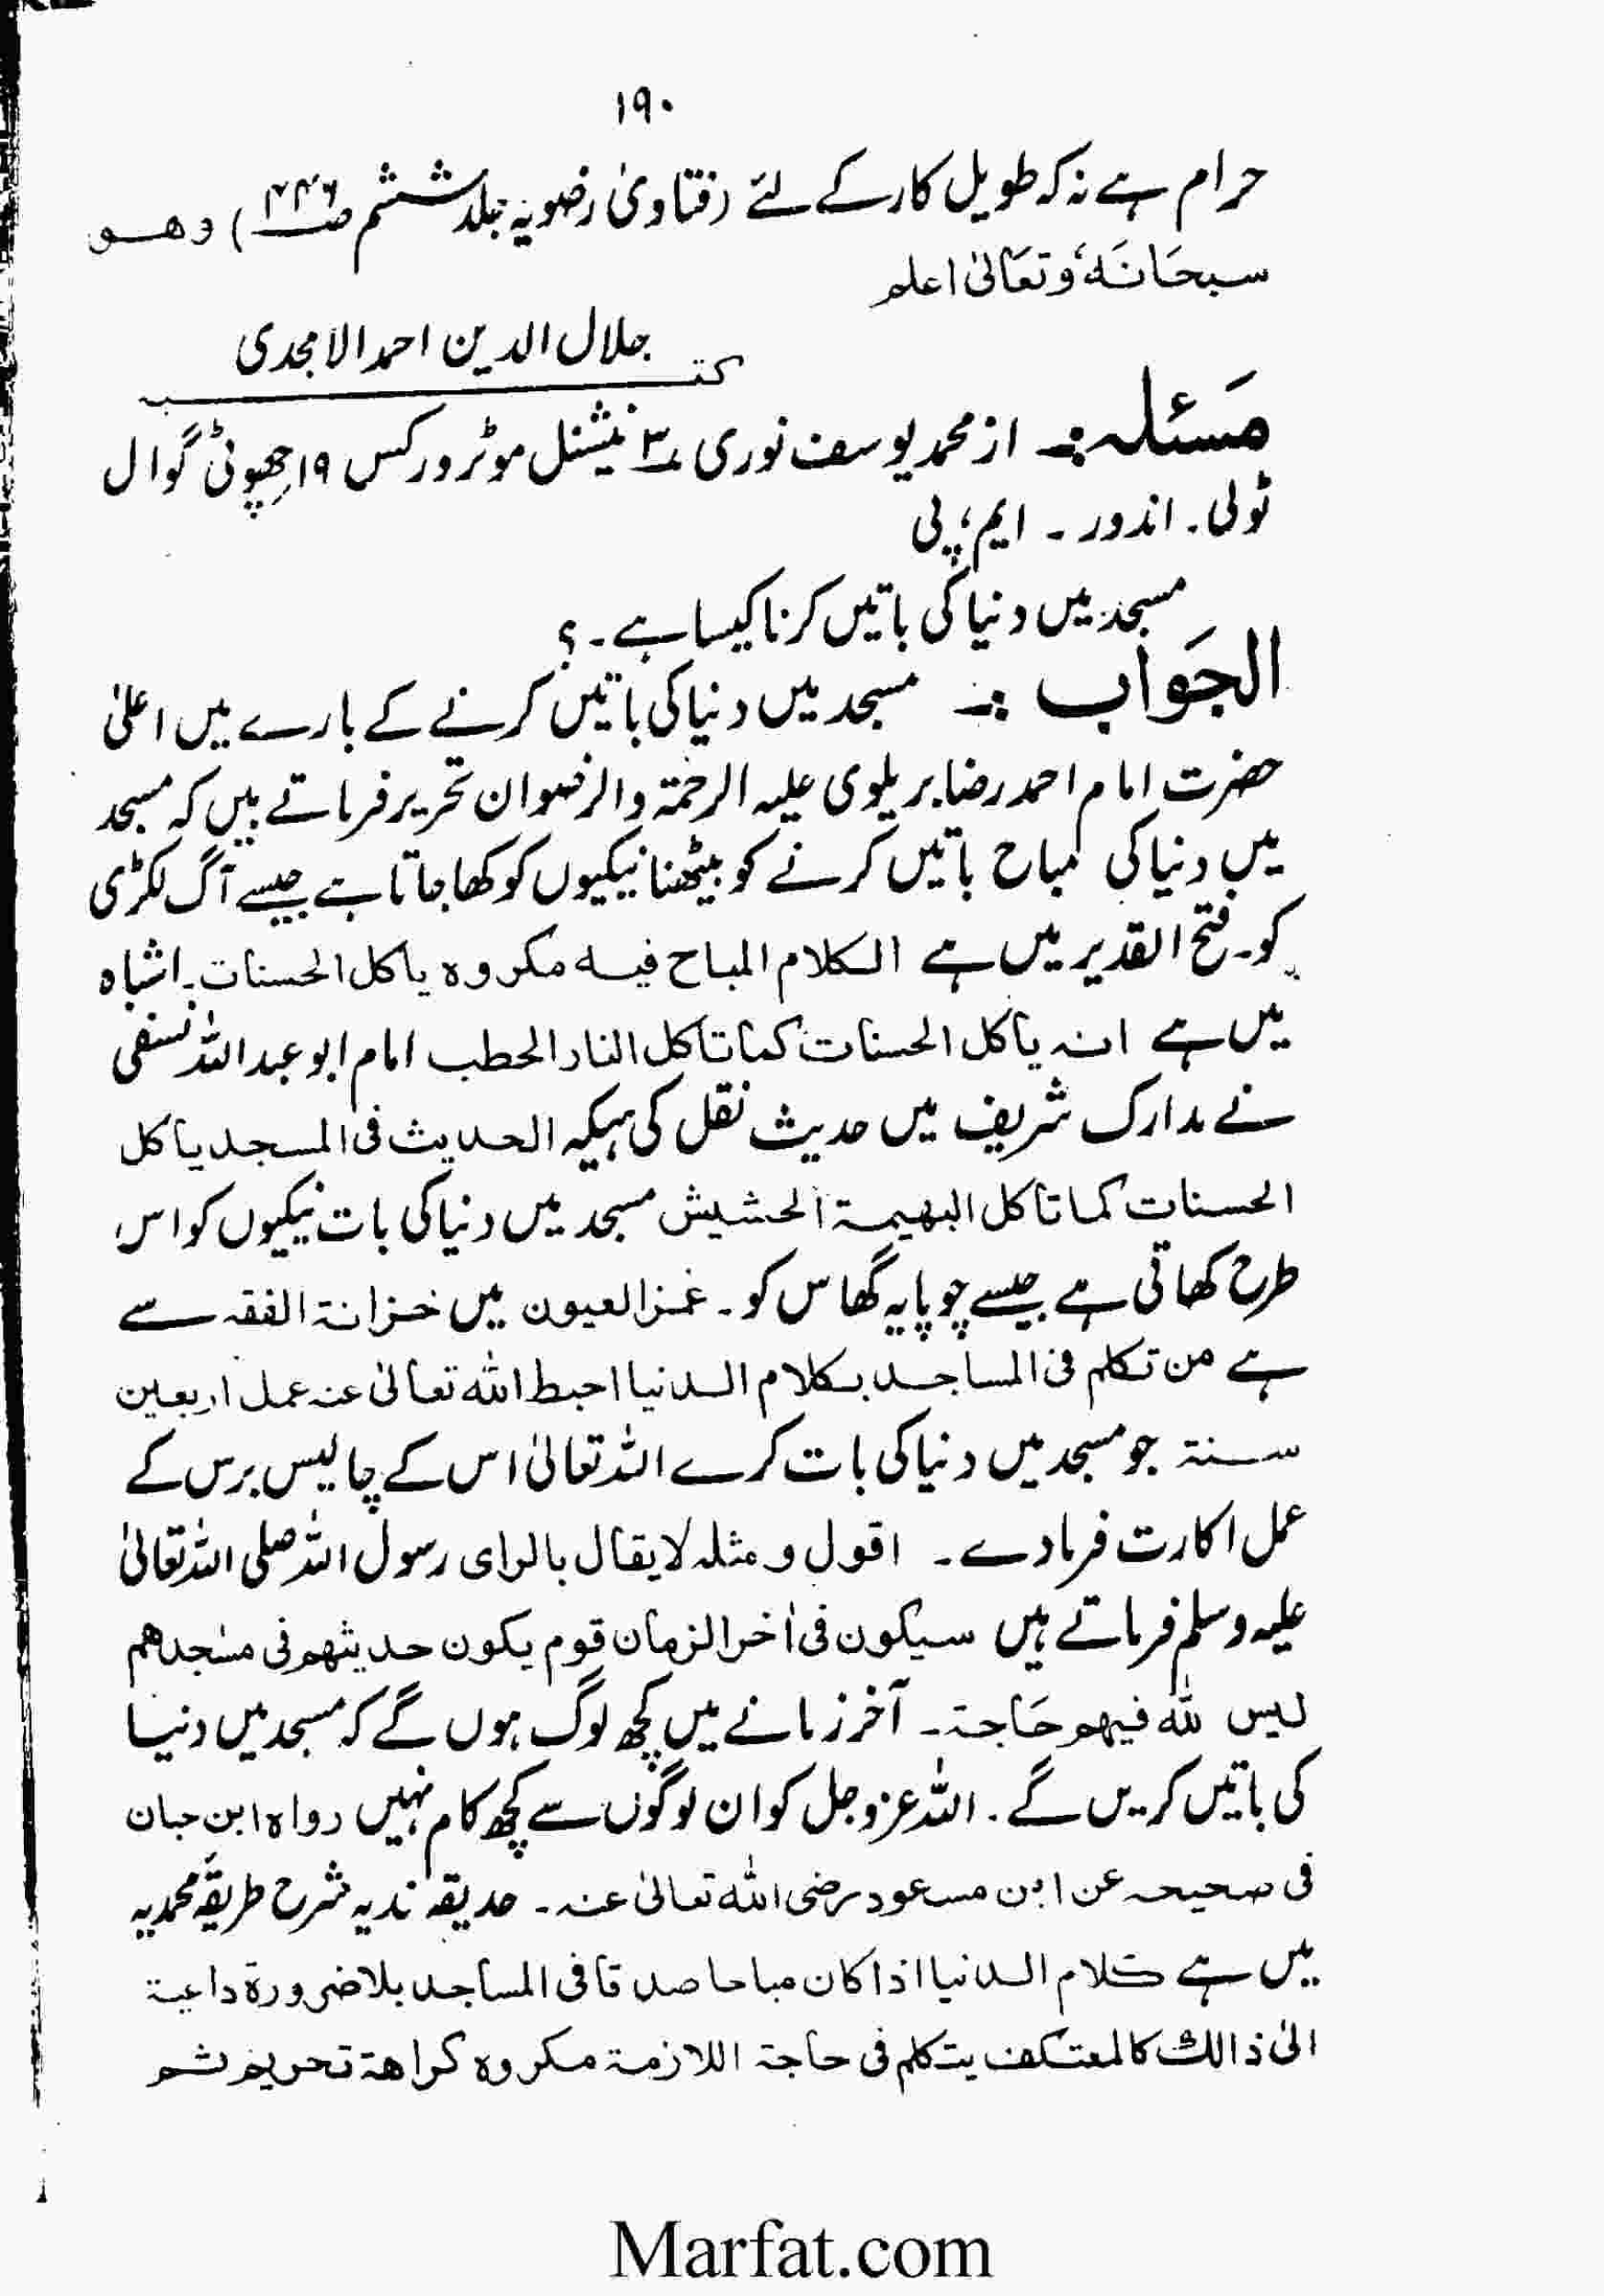 ۱۹۰
حرام ہے نہ کہ طویل کار کے لئے (فتاویٰ رضویہ جلد ششم ص۴۴۶) وھو
سبحانَہٗ وتعَالیٰ اعلم
جلال الدین احمد الامجدی
کتبہ
مَسئلہ:۔ از محمد یوسف نوری ۳ نیشنل موٹر ورکس ۱۹ چھوٹی گوال
ٹولی۔ اندور۔ ایم، پی
مسجد میں دنیا کی باتیں کرنا کیسا ہے۔؟
الجَواب:۔ مسجد میں دنیا کی باتیں کرنے کے بارے میں اعلیٰ
حضرت امام احمد رضا بریلوی علیہ الرحمۃ والرضوان تحریر فرماتے ہیں کہ مسجد
میں دنیا کی مباح باتیں کرنے کو بیٹھنا نیکیوں کو کھا جاتا ہے جیسے آگ لکڑی
کو۔ فتح القدیر میں ہے الکلام المباح فیہ مکروہ یاکل الحسنات۔ اشباہ
میں ہے انہ یاکل الحسنات کما تاکل النار الحطب امام ابو عبد اللہ نسفی
نے مدارک شریف میں حدیث نقل کی ہیکہ الحدیث فی المسجد یاکل
الحسنات کما تاکل البھیمۃ الحشیش مسجد میں دنیا کی بات نیکیوں کو اس
طرح کھاتی ہے جیسے چوپایہ گھاس کو۔ غمز العیون میں خزانۃ الفقہ سے
ہے من تکلم فی المساجد بکلام الدنیا احبط اللہ تعالیٰ عنہ عمل اربعین
سنۃ جو مسجد میں دنیا کی بات کرے اللہ تعالیٰ اس کے چالیس برس کے
عمل اکارت فرما دے۔ اقول ومثلہ لا یقال بالرای رسول اللہ صلی اللہ تعالیٰ
علیہ وسلم فرماتے ہیں سیکون فی اٰخر الزمان قوم یکون حدیثھم فی مسٰجدھم
لیس للہ فیھم حَاجۃ۔ آخر زمانے میں کچھ لوگ ہوں گے کہ مسجد میں دنیا
کی باتیں کریں گے۔ اللہ عزوجل کو ان لوگوں سے کچھ کام نہیں رواہ ابن حبان
فی صحیحہ عن ابن مسعود رضی اللہ تعالیٰ عنہ۔ حدیقہ ندیہ شرح طریقۂ محمدیہ
میں ہے کلام الدنیا اذا کان مباحا صدقا فی المساجد بلا ضرورۃ داعیۃ
الیٰ ذالک کالمعتکف یتکلم فی حاجۃ اللازمۃ مکروہ کراھۃ تحریم ثم
Marfat.com